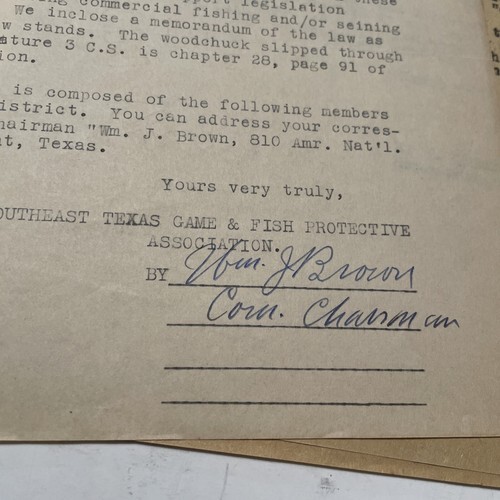 port legislation
commercial fishing and/or seining
We inclose a memorandum of the law as
w stands. The woodchuck slipped through
ature 3 C.S. is chapter 28, page 91 of
ion.
is composed of the following members
istrict. You can address your corres-
hairman "Wm. J. Brown, 810 Amr. Nat'l.
nt, Texas.
Yours very truly,
OUTHEAST TEXAS GAME & FISH PROTECTIVE
ASSOCIATION.
BY Wm. J Brown
Com. Chairman